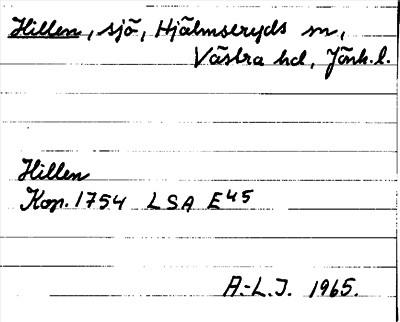 Hillen, sjö, Hjälmseryds sn,
Västra hd, Jönk.l.
Hillen
Kop. 1754 LSA E45
A.-L.J. 1965.